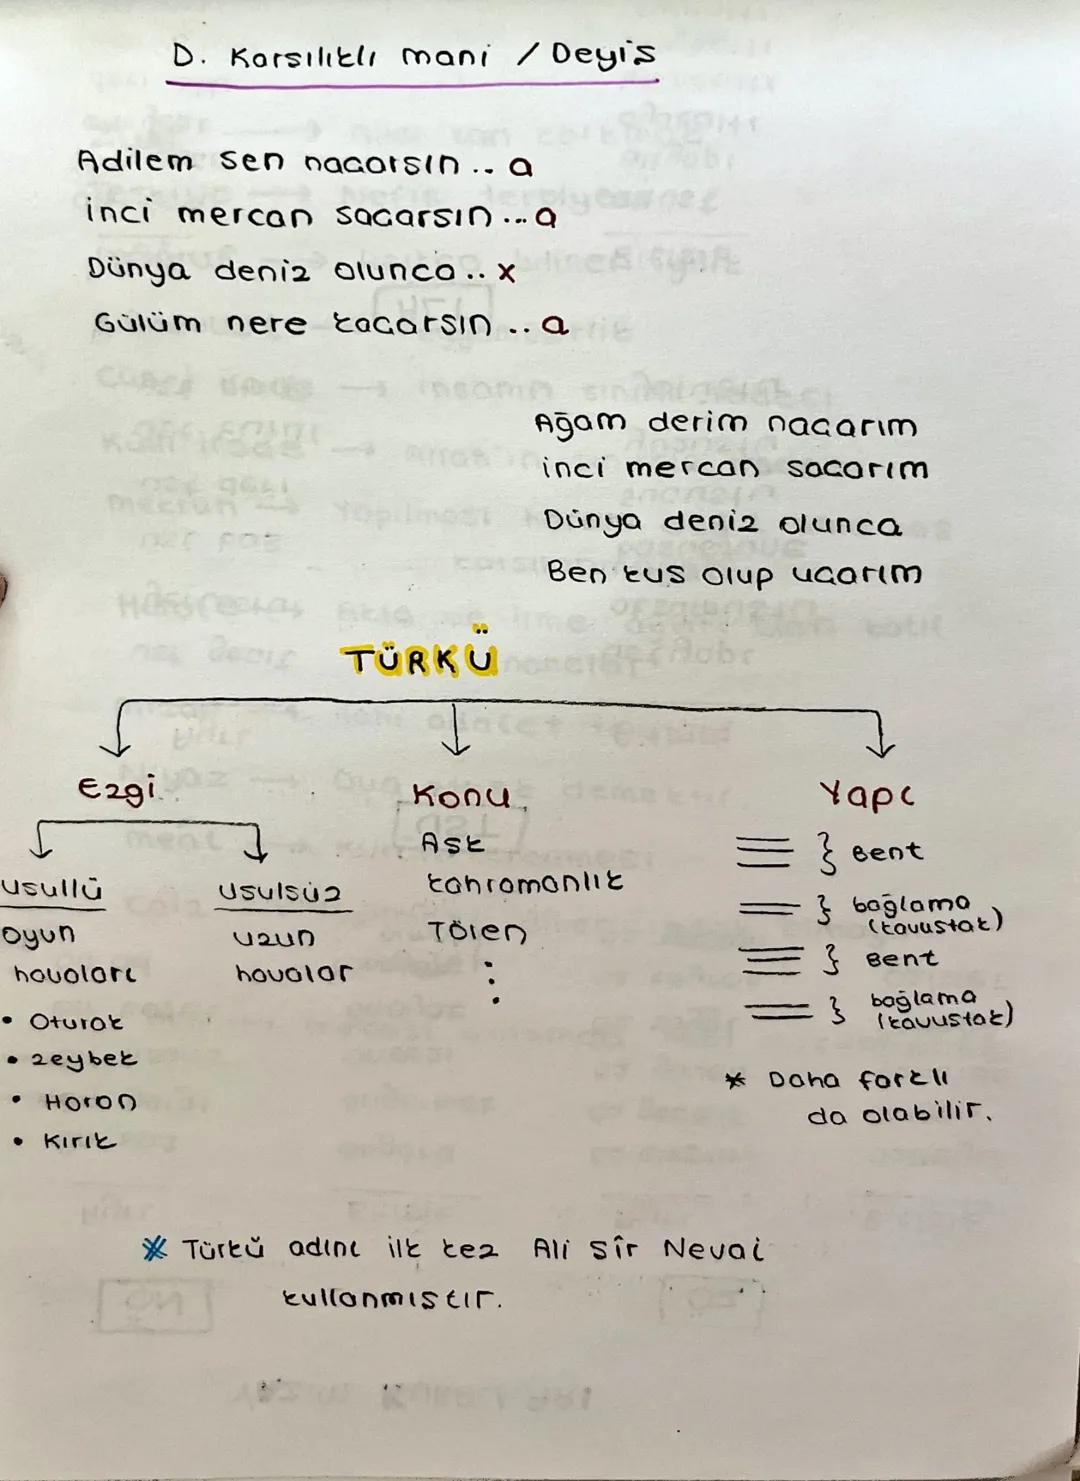 D. Karsılıklı mani / Deyis
Adilem sen nacarsın.. a
inci mercan sacarsın... a
Dünya deniz olunca.. x
Gülüm nere kacarsın.. a
Ağam derim nacarım
inci mercan sacarım
Dünya deniz olunca
Ben kus olup ucarım
TÜRKÜ
Ezgi Konu Yapı
Usullü Usulsüz
oyun
havaları
uzun
havalar
• Oturak
• zeybek
• Horon
• Kırık
Ask
kahramanlık
Tölen
} Bent
} bağlama
(kavustak)
} Bent
} bağlama
(kavustak)
* Daha farklı
da olabilir.
* Türkü adını ilk kez Ali sîr Nevai
kullanmıstır.